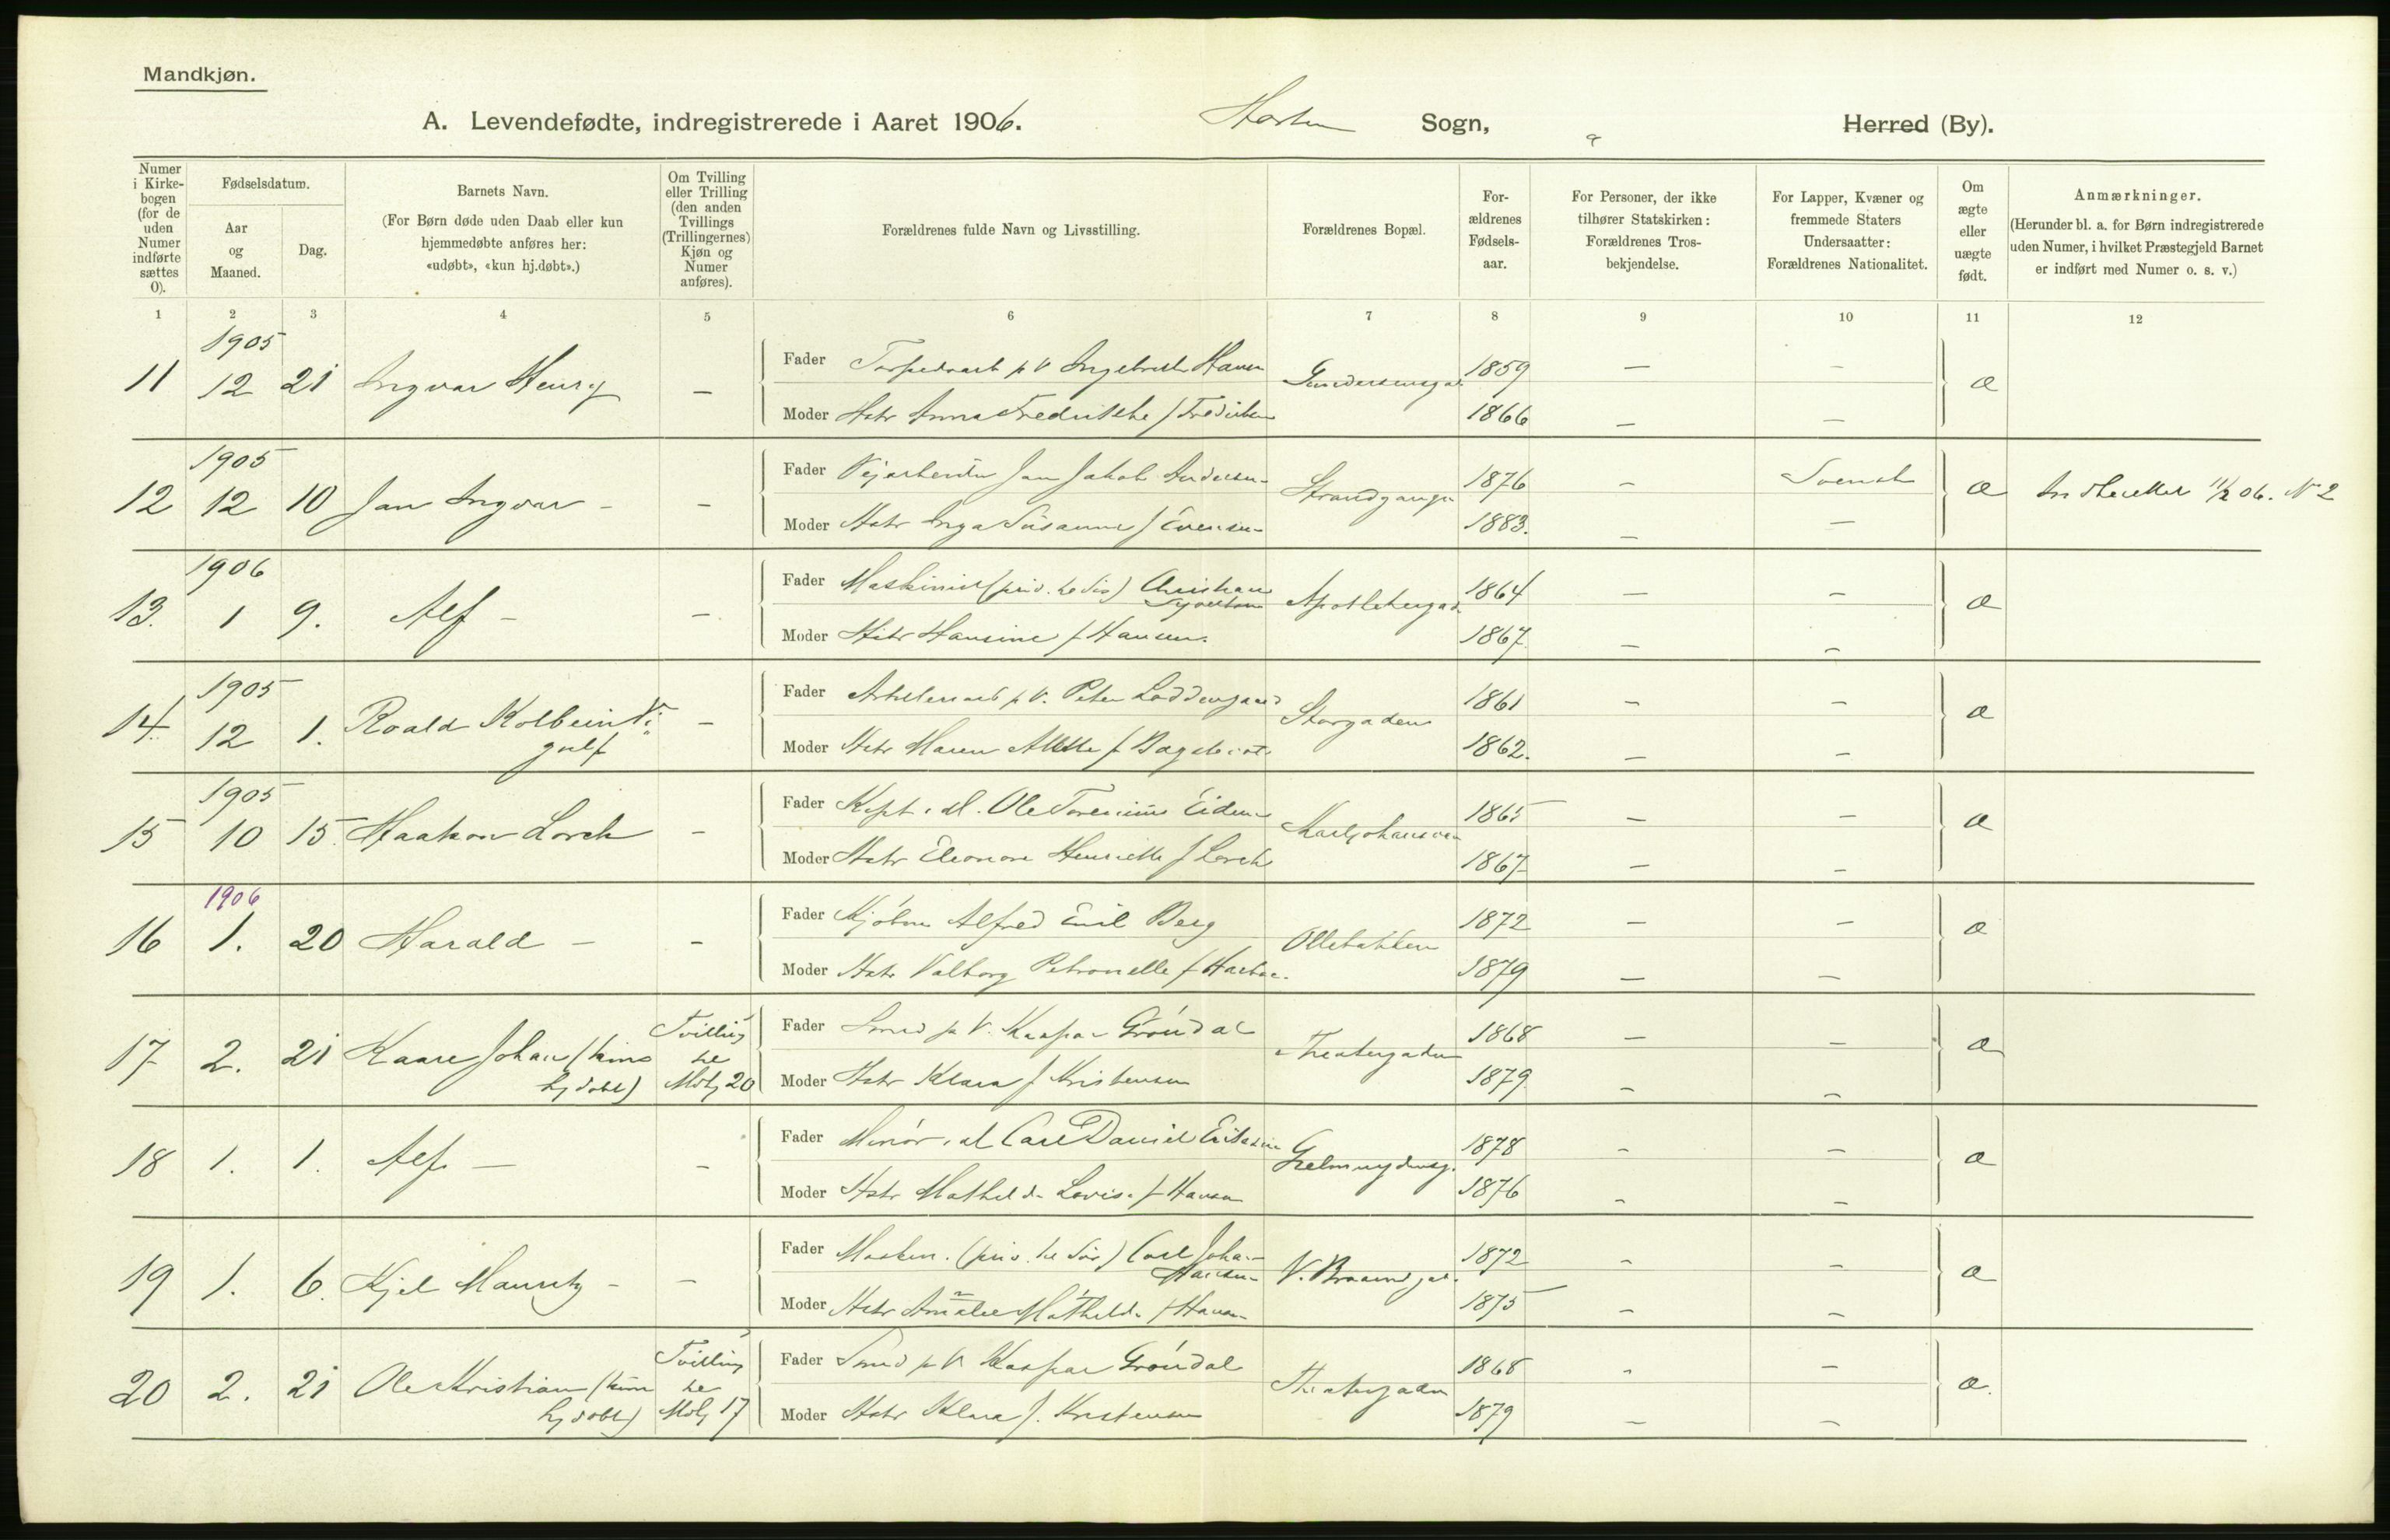 Mandkjøn.
A. Levendefødte, indregistrerede i Aaret 1906. Horten Sogn, Herred (By).
Numer i Kirkebogen (for de uden Numer indførte sættes 0).
Fødselsdatum.
Aar og Maaned.
Dag.
Barnets Navn.
(For Børn døde uden Daab eller kun hjemmedøbte anføres her: «udøbt», «kun hj.døbt».)
Om Tvilling eller Trilling (den anden Tvillings (Trillingernes) Kjøn og Numer anføres).
Forældrenes fulde Navn og Livsstilling.
Forældrenes Bopæl.
Forældrenes Fødselsaar.
For Personer, der ikke tilhører Statskirken: Forældrenes Trosbekjendelse.
For Lapper, Kvæner og fremmede Staters Undersaatter: Forældrenes Nationalitet.
Om ægte eller uægte født.
Anmærkninger.
(Herunder bl. a. for Børn indregistrerede uden Numer, i hvilket Præstegjeld Barnet er indført med Numer o. s. v.)
1 2 3 4 5 6 7 8 9 10 11 12
1905
11 12 21 Ingvar Henry – Fader Torpedoarb p V Hansen 1859 – – æ
Moder Hstr Anna Fredrikke f 1866 – –
1905
12 12 10 Jan Ingvar – – Fader Jan Jakob Andersen 1876 – Svensk æ 11/2 06. N 2
Moder Hstr Inga Susanne f Evensen 1883. – –
1906
13. 1 9. Alf – – Fader Maskinist (priv. bedr) Christian Syvertsen Apothekergad. 1864 – – æ
Moder Hstr Hansine f Hansen 1867 – –
1905
14. 12 1. Roald Kolbein – Fader p V. Peter Loddengaard Storgaden 1861 – – æ
Moder Hstr Maren f 1862. – –
1905
15 10 15. Haakon Lorck – Fader Kapt. Ole 1865 – – æ
Moder Hstr Eleonore Henriette f Lorck 1867 – –
1906
16 1. 20 Harald – – Fader Alfred Emil Berg Ollebakken 1872 – – æ
Moder Hstr Valborg Petronelle f 1879 – –
17 2. 21 Kaare Johan (kun hj døbt) Tvilling Fader Smed p V. Kaspar Grøndal Theatergaden 1868 – – æ
20 Moder Hstr Klara f Kristensen 1879 – –
18 1. 1. Alf – – Fader Minør Carl Daniel 1878 – – æ
Moder Hstr Mathilde Lovise f Hansen 1876 – –
19 1. 6. Kjel Mauritz – – Fader Maskin. (priv. bedr) Carl Johan Hansen 1872 – – æ
Moder Hstr Amalie Mathilde f Hansen 1875 – –
20 2. 21 Ole Kristian (kun hj døbt) Tvilling Fader Smed p V Kaspar Grøndal Theatergaden 1868 – – æ.
17 Moder Hstr Klara f. Kristensen 1879 – –